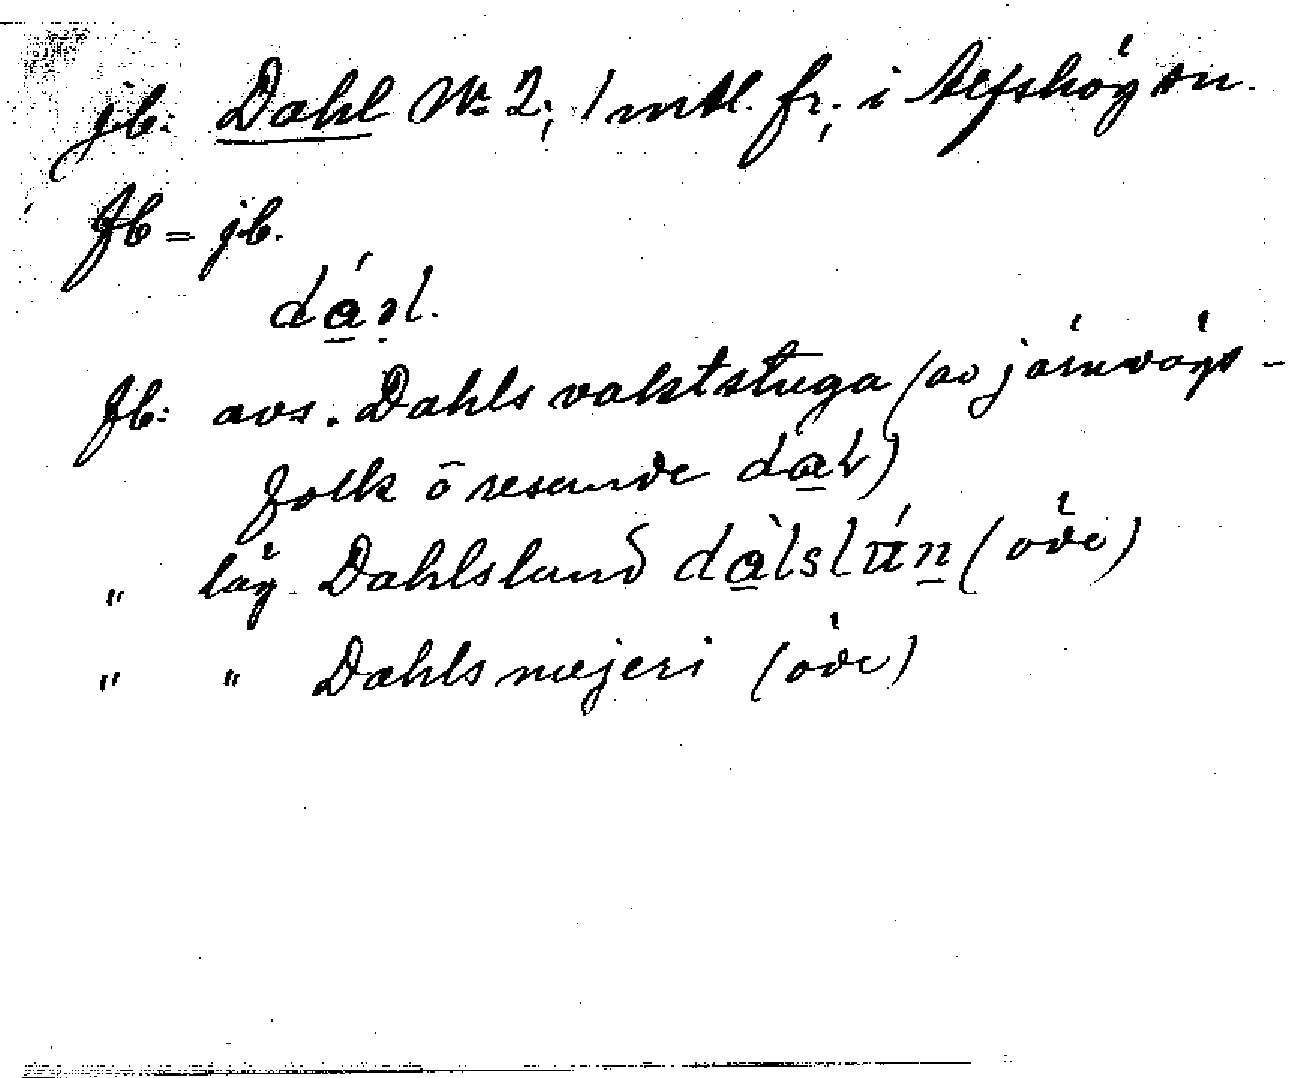 jb: Dahl No 2; 1 mtl. fr; i Alfshög sn.
fb = jb.
fb: avs. Dahls vaktstuga (av järnvägs-
folk o resande dal)
" läg. Dahlslund (öde)
" " Dahls mejeri (öde)